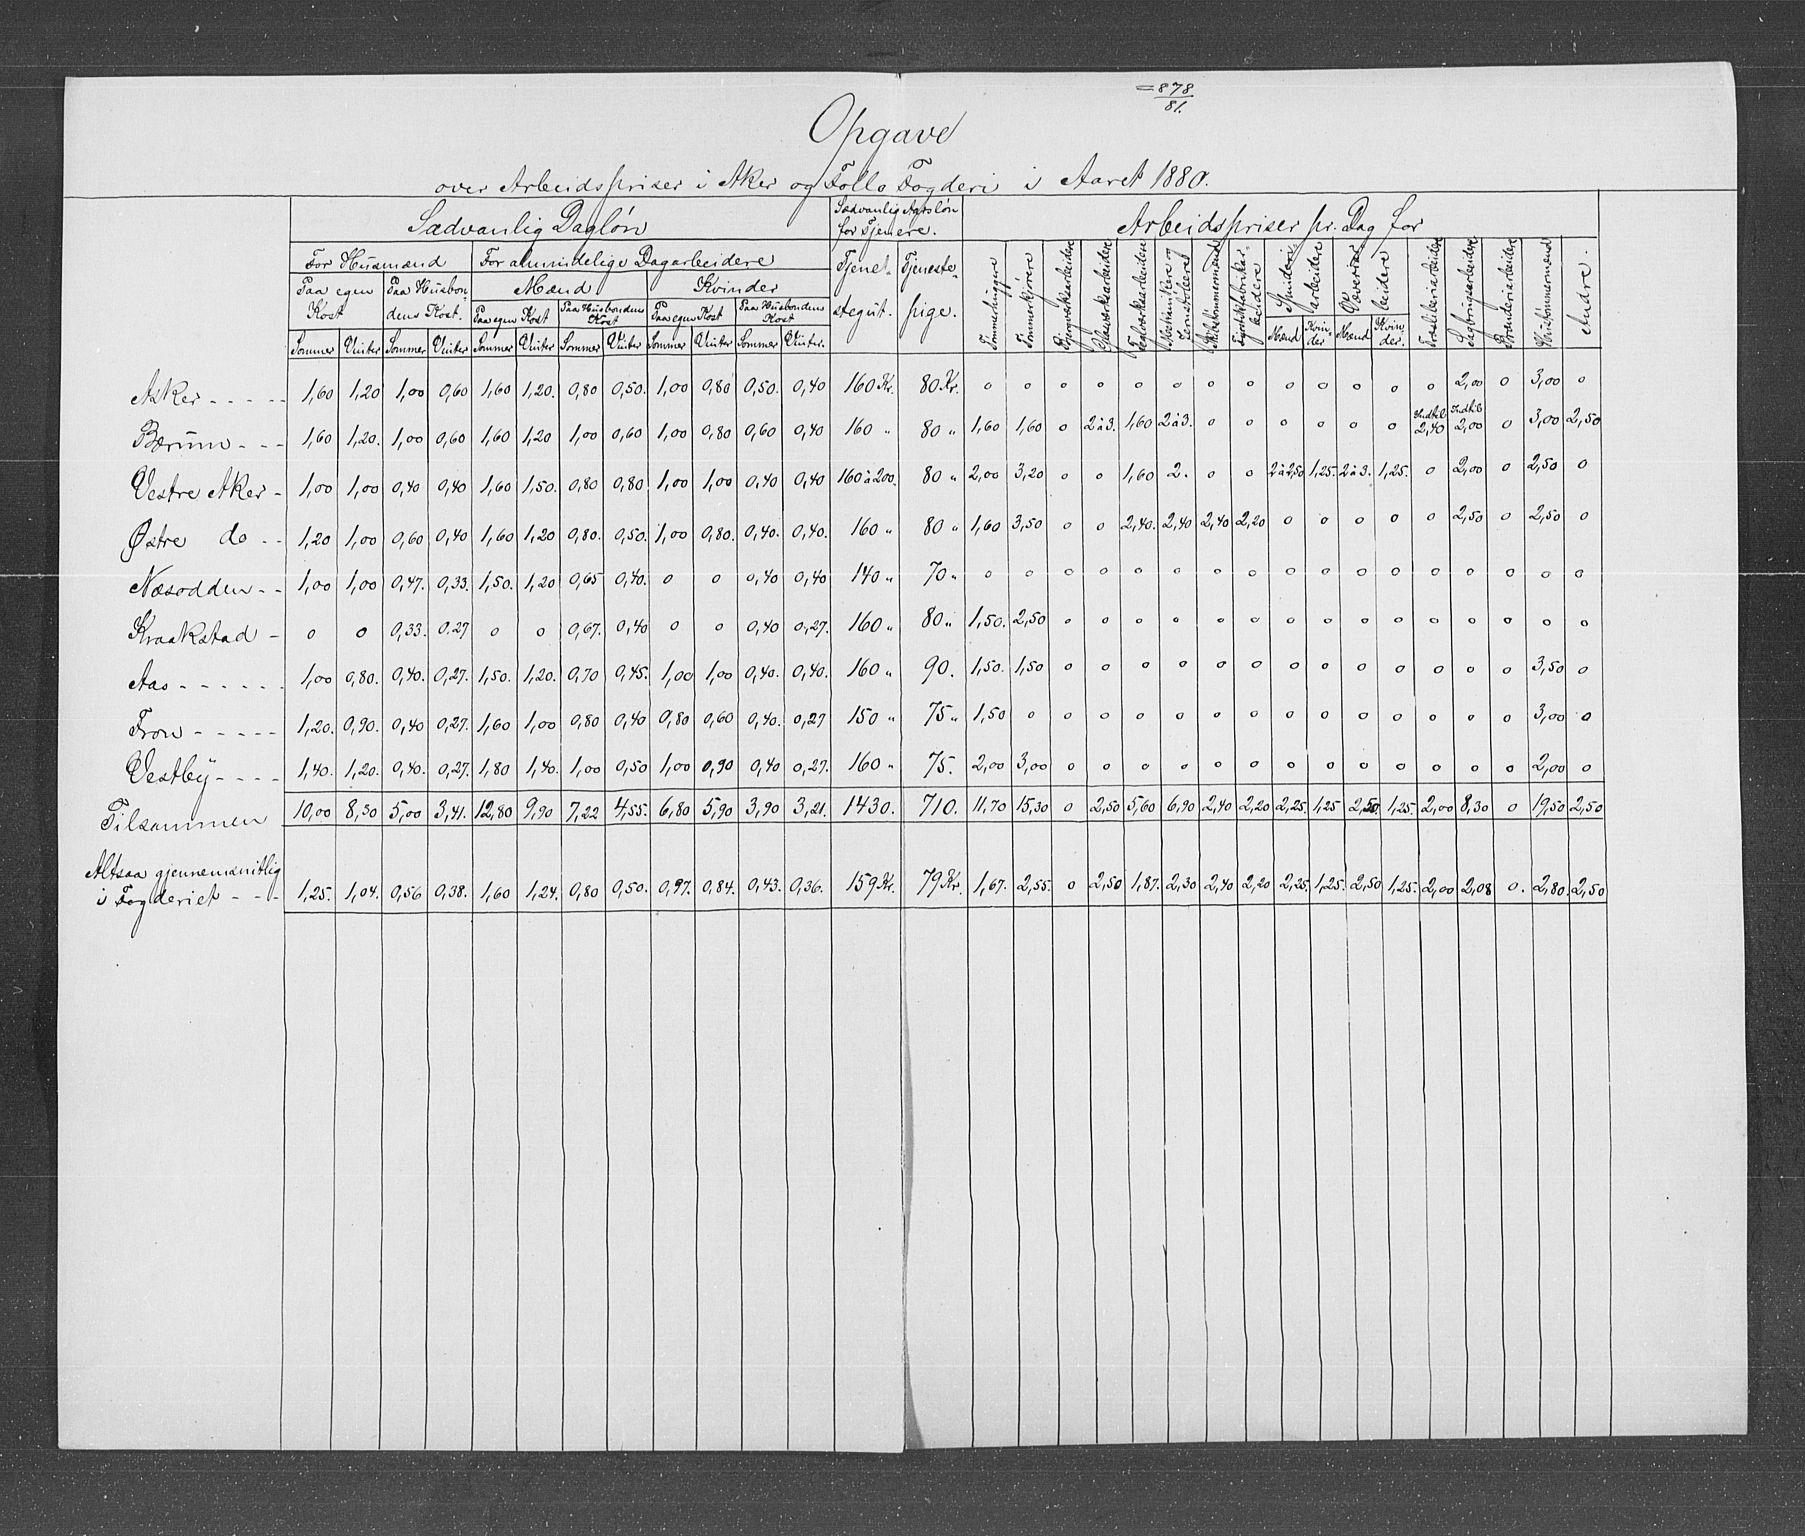 =878/81.
Opgave
over Arbeidspriser i Aker og Follo Fogderi i Aaret 1880.
Sædvanlig Dagløn | Sædvanlig Aarsløn for Tjenere. | Arbeidspriser pr. Dag for
For Husmænd | For almindelige Dagarbeidere | Tjenestegut. | Tjenestepige. | Tømmerhuggere | Tømmerkjørere | Bjergværksarbeidere | Glasværksarbeidere | Jernværksarbeidere | Mekanikere og Jernstøbere | Skibstømmermænd | Fyrstikfabrikarbeidere | Spinderiarbeidere | Væveriarbeidere | Træsliberiarbeidere | Sagbrugsarbeidere | Brænderiarbeidere | Hustømmermænd | Andre.
Paa egen Kost | Paa Husbondens Kost. | Mænd | Kvinder
Paa egen Kost | Paa Husbondens Kost | Paa egen Kost | Paa Husbondens Kost
Sommer | Vinter | Sommer | Vinter | Sommer | Vinter | Sommer | Vinter | Sommer | Vinter | Sommer | Vinter. | Mænd | Kvinder | Mænd | Kvinder.
Asker - - - - - | 1,60 | 1,20 | 1,00 | 0,60 | 1,60 | 1,20. | 0,80 | 0,50. | 1,00 | 0,80 | 0,50. | 0,40 | 160 Kr. | 80 Kr. | 0 | 0 | 0 | 0 | 0 | 0 | 0 | 0 | 0 | 0 | 0 | 0 | 0 | 2,00 | 0 | 3,00 | 0
Bærum - - - | 1,60 | 1,20. | 1,00 | 0,60 | 1,60 | 1,20 | 1,00 | 0,60 | 1,00 | 0,80 | 0,60 | 0,40 | 160 " | 80 " | 1,60 | 1,60 | 0 | 2 à 3. | 1,60 | 2 à 3. | 0 | 0 | 0 | 0 | 0 | 0 | Indtil 2,40 | Indtil 2,00 | 0 | 3,00 | 2,50
Vestre Aker - | 1,00 | 1,00 | 0,40 | 0,40 | 1,60 | 1,50. | 0,80 | 0,80 | 1,00 | 1,00 | 0,40 | 0,40 | 160 à 200. | 80 " | 2,00 | 3,20 | 0 | 0 | 1,60 | 2. | 0 | 0 | 2 à 2,50 | 1,25. | 2 à 3. | 1,25. | 0 | 2,00 | 0 | 2,50 | 0
Østre do - - | 1,20 | 1,00 | 0,60 | 0,40 | 1,60 | 1,20 | 0,80. | 0,50. | 1,00 | 0,80. | 0,40. | 0,40. | 160 " | 80 " | 1,60 | 3,50 | 0 | 0 | 2,40. | 2,40 | 2,40 | 2,20 | 0 | 0 | 0 | 0 | 0 | 2,50 | 0 | 2,50 | 0
Næsodden - - | 1,00 | 1,00 | 0,47. | 0,33. | 1,50. | 1,20 | 0,65 | 0,40. | 0 | 0 | 0,40 | 0,40 | 140 " | 70 " | 0 | 0 | 0 | 0 | 0 | 0 | 0 | 0 | 0 | 0 | 0 | 0 | 0 | 0 | 0 | 0 | 0
Kraakstad - | 0 | 0 | 0,33. | 0.27 | 0 | 0 | 0,67. | 0,40 | 0 | 0 | 0,40 | 0,27. | 160 " | 80 " | 1,50. | 2,50 | 0 | 0 | 0 | 0 | 0 | 0 | 0 | 0 | 0 | 0 | 0 | 0 | 0 | 0 | 0
Aas - - - - - - | 1,00 | 0,80. | 0,40. | 0,27. | 1,50. | 1,20. | 0,70 | 0,45. | 1,00 | 1,00 | 0,40. | 0,40. | 160 " | 90. | 1,50. | 1,50 | 0 | 0 | 0 | 0 | 0 | 0 | 0 | 0 | 0 | 0 | 0 | 0 | 0 | 3,50 | 0
Fron - - - - - | 1,20. | 0,90. | 0,40 | 0,27. | 1,60 | 1,00 | 0,80 | 0,40 | 0,80 | 0,60 | 0,40. | 0,27 | 150 " | 75 " | 1,50 | 0 | 0 | 0 | 0 | 0 | 0 | 0 | 0 | 0 | 0 | 0 | 0 | 0 | 0 | 3,00 | 0
Vestby - - - - | 1,40. | 1,20. | 0,40. | 0,27. | 1,80 | 1,40. | 1,00 | 0,50 | 1,00 | 0,90 | 0,40 | 0,27. | 160 " | 75. | 2,00 | 3,00 | 0 | 0 | 0 | 0 | 0 | 0 | 0 | 0 | 0 | 0 | 0 | 0 | 0 | 2,00 | 0
Tilsammen | 10,00 | 8,30 | 5,00 | 3,41. | 12,80 | 9,90 | 7,22 | 4,55. | 6,80 | 5,90 | 3,90 | 3,21. | 1430. | 710. | 11,70 | 15,30 | 0 | 2,50 | 5,60 | 6,90 | 2,40 | 2,20 | 2,25. | 1,25 | 2,50. | 1,25. | 2,00 | 8,30 | 0 | 19,50 | 2,50
Altsaa gjennemsnitlig
i Fogderiet - - - | 1,25. | 1,04. | 0,56 | 0,38. | 1,60 | 1,24. | 0,80 | 0,50. | 0,97. | 0,84. | 0,43. | 0,36. | 159 Kr. | 79 Kr. | 1,67. | 2,55. | 0 | 2,50 | 1,87. | 2,30 | 2,40 | 2,20 | 2,25. | 1,25. | 2,50 | 1,25. | 2,00 | 2,08 | 0. | 2,80. | 2,50